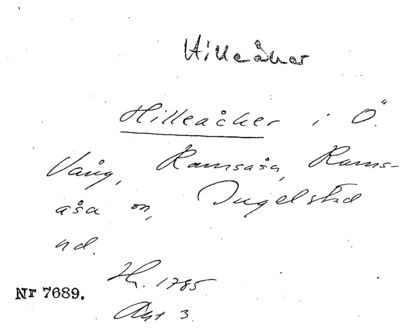 Hilleåker
Hilleåker i Ö.
Vång, Ramsåsa, Rams-
åsa sn, Ingelstad
hd.
Hs. 1785
Nr 7689.
Akt 3